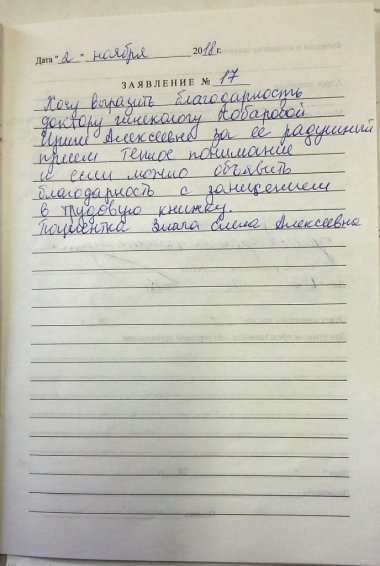 Дата "2" ноября 2018 г.
ЗАЯВЛЕНИЕ № 17
Хочу выразить благодарность
доктору гинекологу
Алексеевне за ее радушный
прием теплое понимание
и если можно объявить
благодарность с занесением
в трудовую книжку.
Пациентка Елена Алексеевна